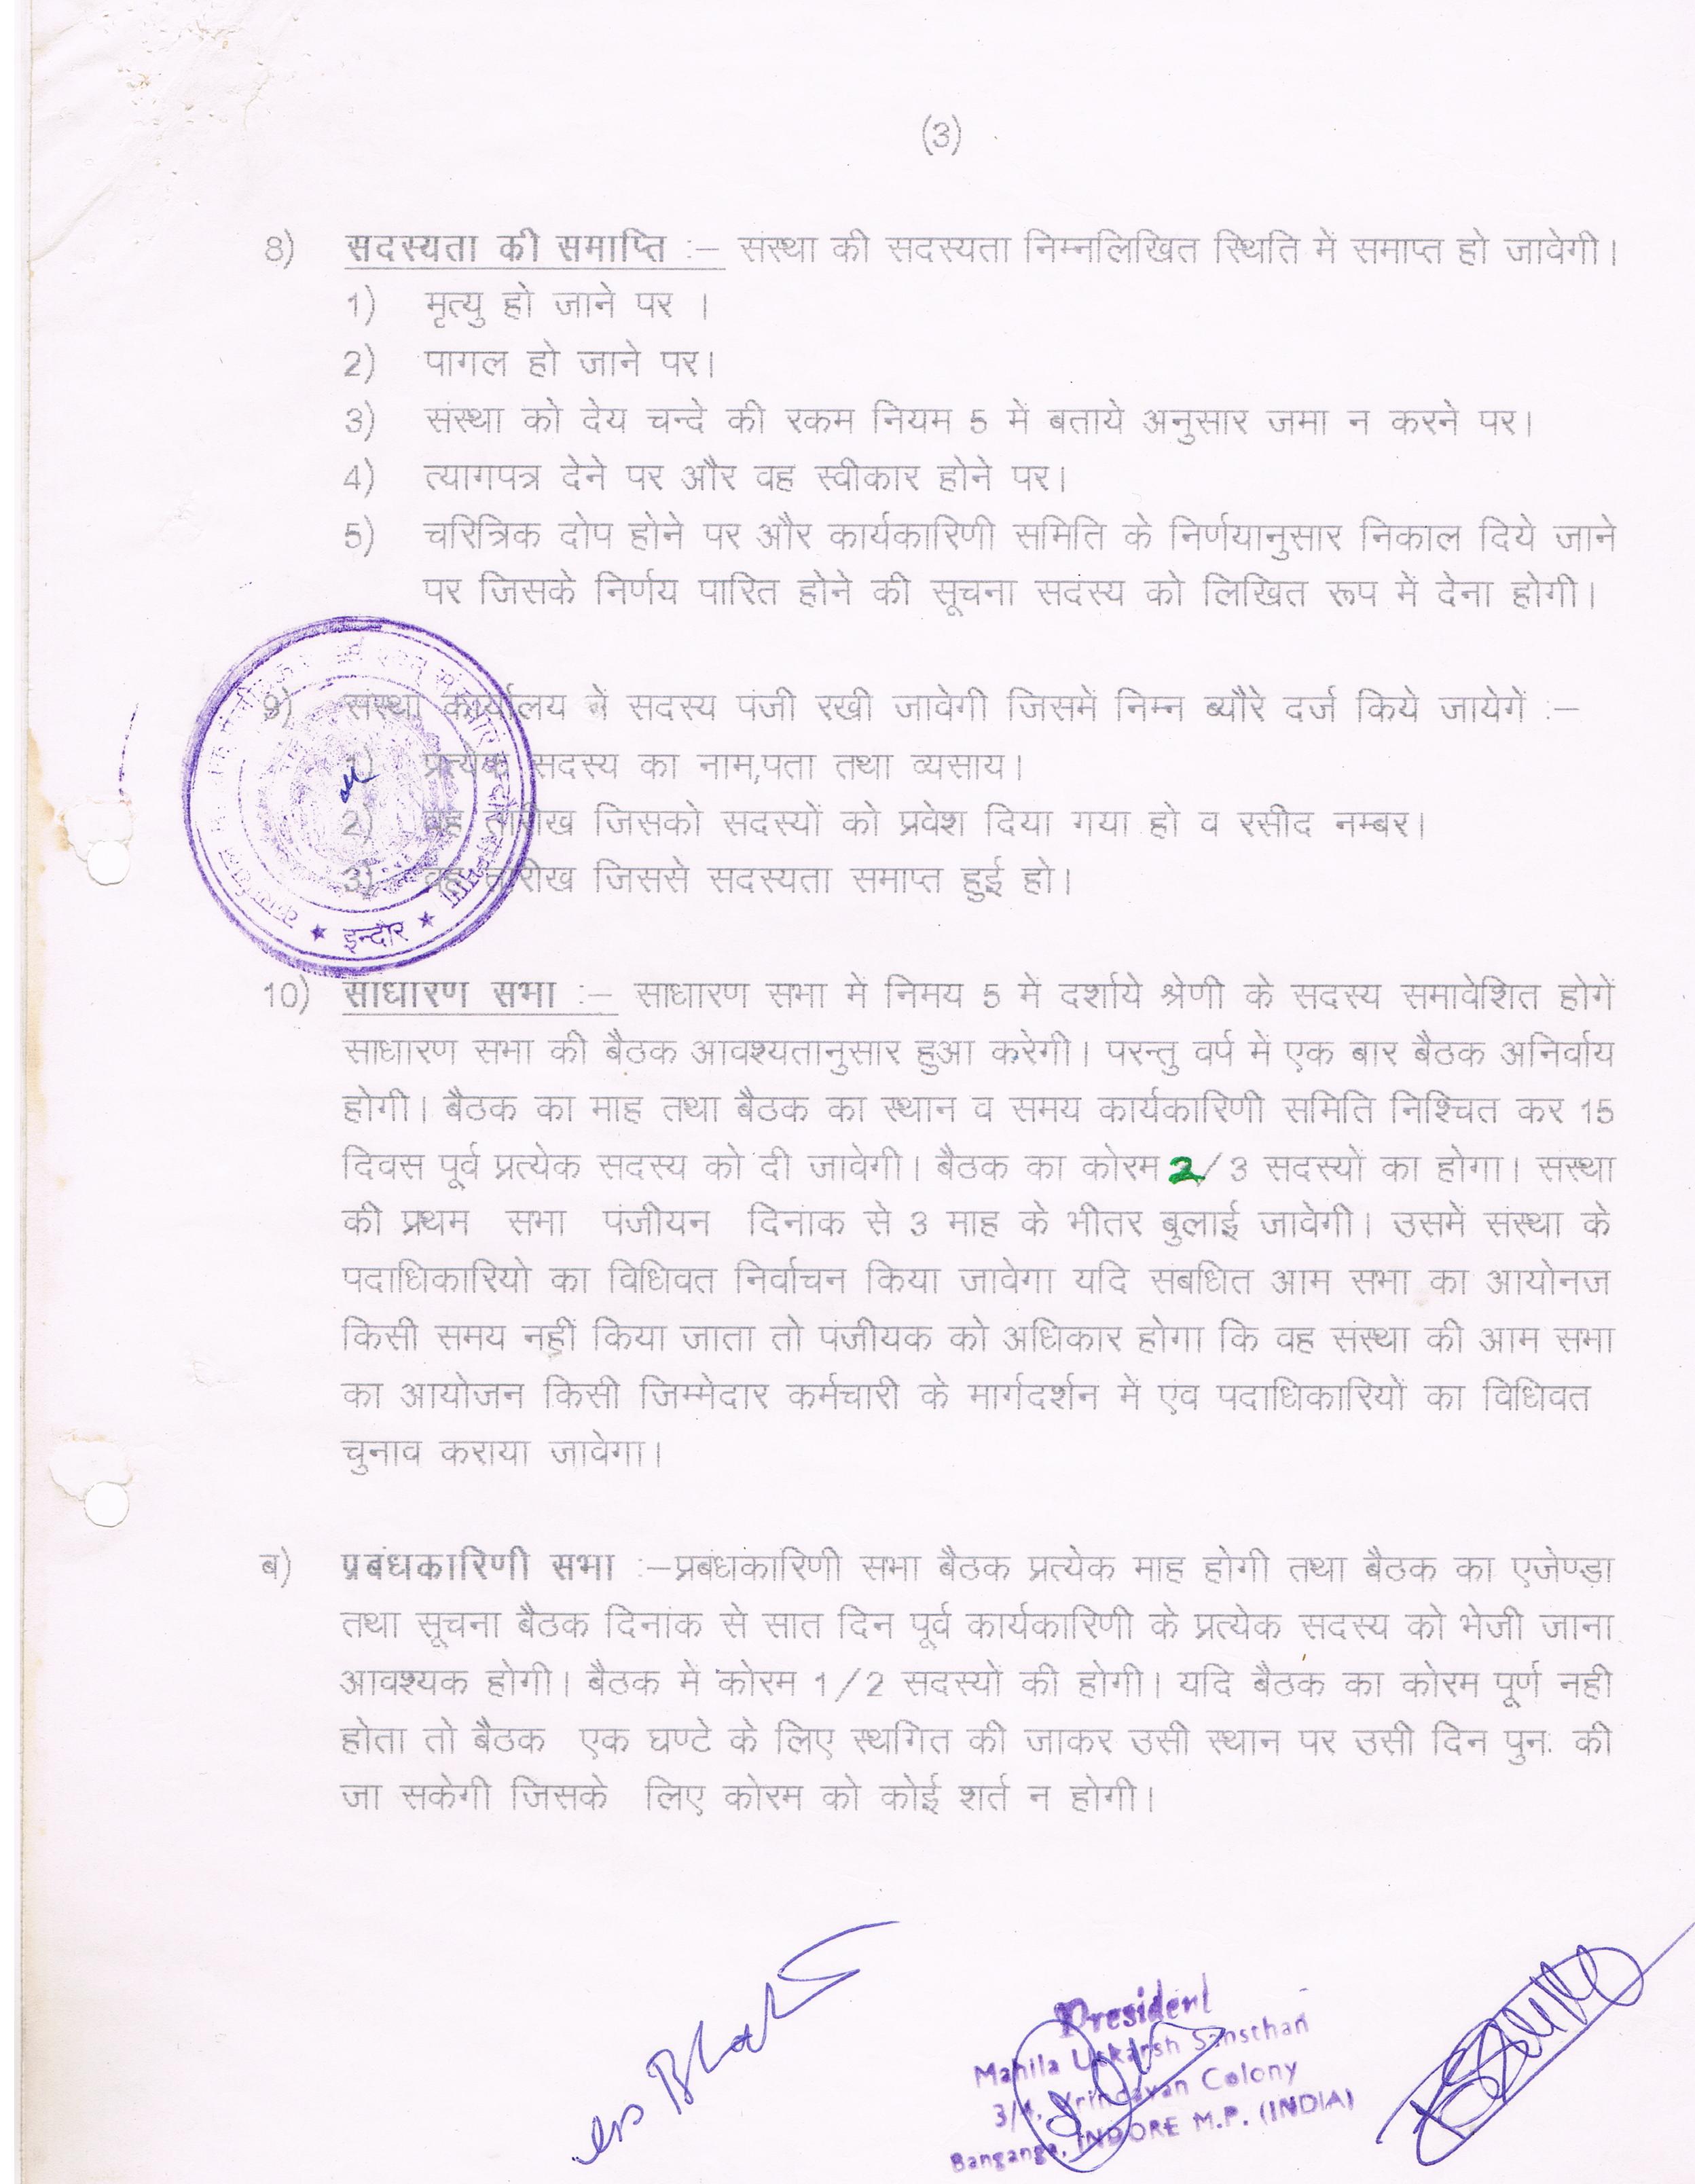 (3)
8) सदस्यता की समाप्ति :– संस्था की सदस्यता निम्नलिखित स्थिति में समाप्त हो जावेगी।
1) मृत्यु हो जाने पर ।
2) पागल हो जाने पर।
3) संस्था को देय चन्दे की रकम नियम 5 में बताये अनुसार जमा न करने पर।
4) त्यागपत्र देने पर और वह स्वीकार होने पर।
5) चरित्रिक दोप होने पर और कार्यकारिणी समिति के निर्णयानुसार निकाल दिये जाने
पर जिसके निर्णय पारित होने की सूचना सदस्य को लिखित रूप में देना होगी।
9) संस्था कार्यालय में सदस्य पंजी रखी जावेगी जिसमें निम्न ब्यौरे दर्ज किये जायेगें :–
1) प्रत्येक सदस्य का नाम,पता तथा व्यसाय।
2) वह तारीख जिसको सदस्यों को प्रवेश दिया गया हो व रसीद नम्बर।
3) वह तारीख जिससे सदस्यता समाप्त हुई हो।
★ इन्दौर ★
10) साधारण सभा :– साधारण सभा में निमय 5 में दर्शाये श्रेणी के सदस्य समावेशित होगें
साधारण सभा की बैठक आवश्यतानुसार हुआ करेगी। परन्तु वर्प में एक बार बैठक अनिर्वाय
होगी। बैठक का माह तथा बैठक का स्थान व समय कार्यकारिणी समिति निश्चित कर 15
दिवस पूर्व प्रत्येक सदस्य को दी जावेगी। बैठक का कोरम 2/3 सदस्यों का होगा। सस्था
की प्रथम सभा पंजीयन दिनाक से 3 माह के भीतर बुलाई जावेगी। उसमें संस्था के
पदाधिकारियो का विधिवत निर्वाचन किया जावेगा यदि सबधित आम सभा का आयोनज
किसी समय नहीं किया जाता तो पंजीयक को अधिकार होगा कि वह संस्था की आम सभा
का आयोजन किसी जिम्मेदार कर्मचारी के मार्गदर्शन में एंव पदाधिकारियों का विधिवत
चुनाव कराया जावेगा।
ब) प्रबंधकारिणी सभा :–प्रबंधकारिणी सभा बैठक प्रत्येक माह होगी तथा बैठक का एजेण्ड़ा
तथा सूचना बैठक दिनांक से सात दिन पूर्व कार्यकारिणी के प्रत्येक सदस्य को भेजी जाना
आवश्यक होगी। बैठक में कोरम 1/2 सदस्यों की होगी। यदि बैठक का कोरम पूर्ण नही
होता तो बैठक एक घण्टे के लिए स्थगित की जाकर उसी स्थान पर उसी दिन पुनः की
जा सकेगी जिसके लिए कोरम को कोई शर्त न होगी।
President
Mahila Utkarsh Sansthan
3/4, Vrindavan Colony
Banganga, INDORE M.P. (INDIA)